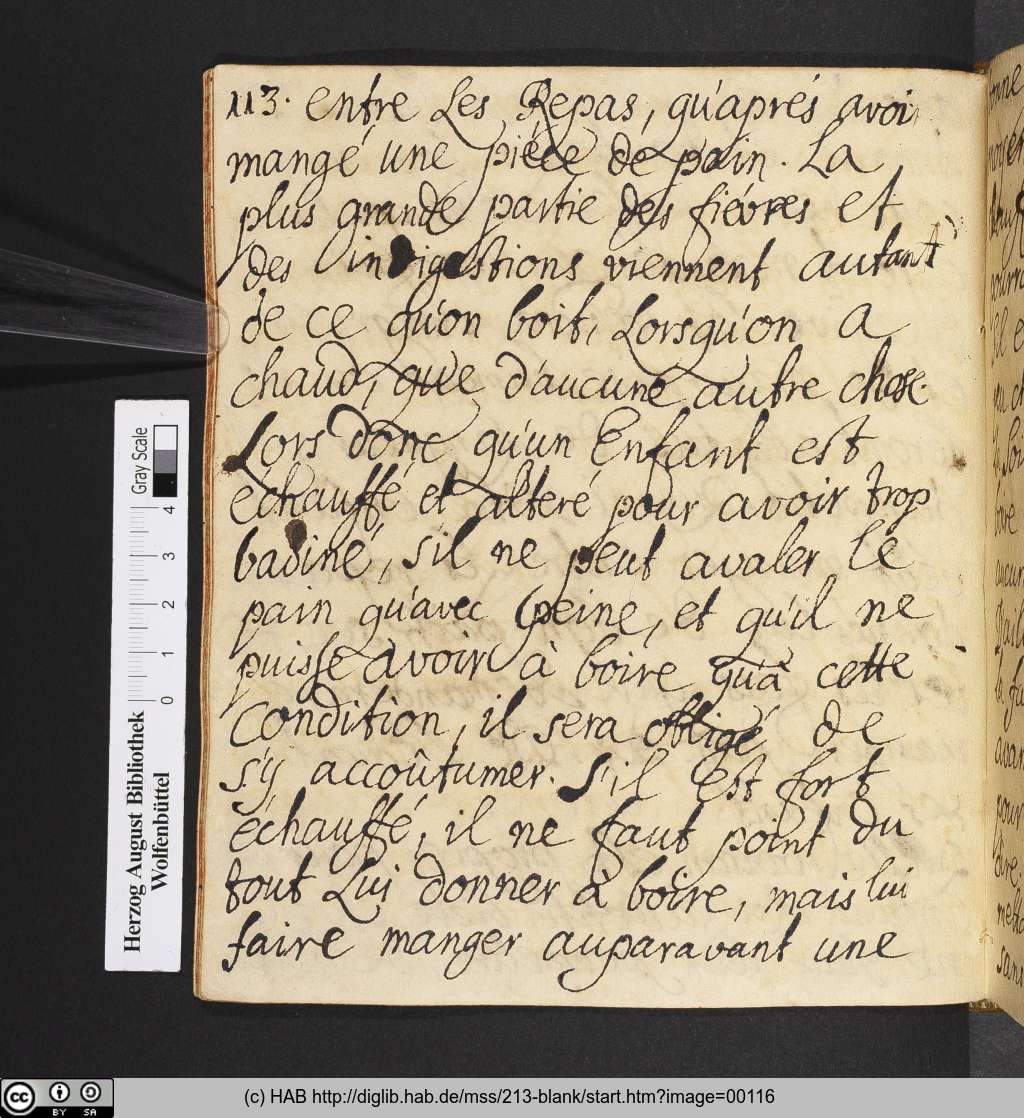 113. entre Les Repas, qu'aprés avoir
mangé une piéce de pain. La
plus grande partie des fiévres et
des indigestions viennent autant
de ce qu'on boit, Lorsqu'on a
chaud, que d'aucune autre chose.
Lors donc qu'un Enfant est
echauffé et alteré pour avoir trop
badiné, s'il ne peut avaler le
pain qu'avec peine, et qu'il ne
puisse avoir à boire qu'à cette
Condition, il sera obligé de
s'ÿ accoûtumer. S'il est fort
échauffé, il ne faut point du
tout Lui donner à boire, mais lui
faire manger auparavant une
Herzog August Bibliothek
Wolfenbüttel
0 1 2 3 4
Gray Scale
cc BY SA
(c) HAB http://diglib.hab.de/mss/213-blank/start.htm?image=00116